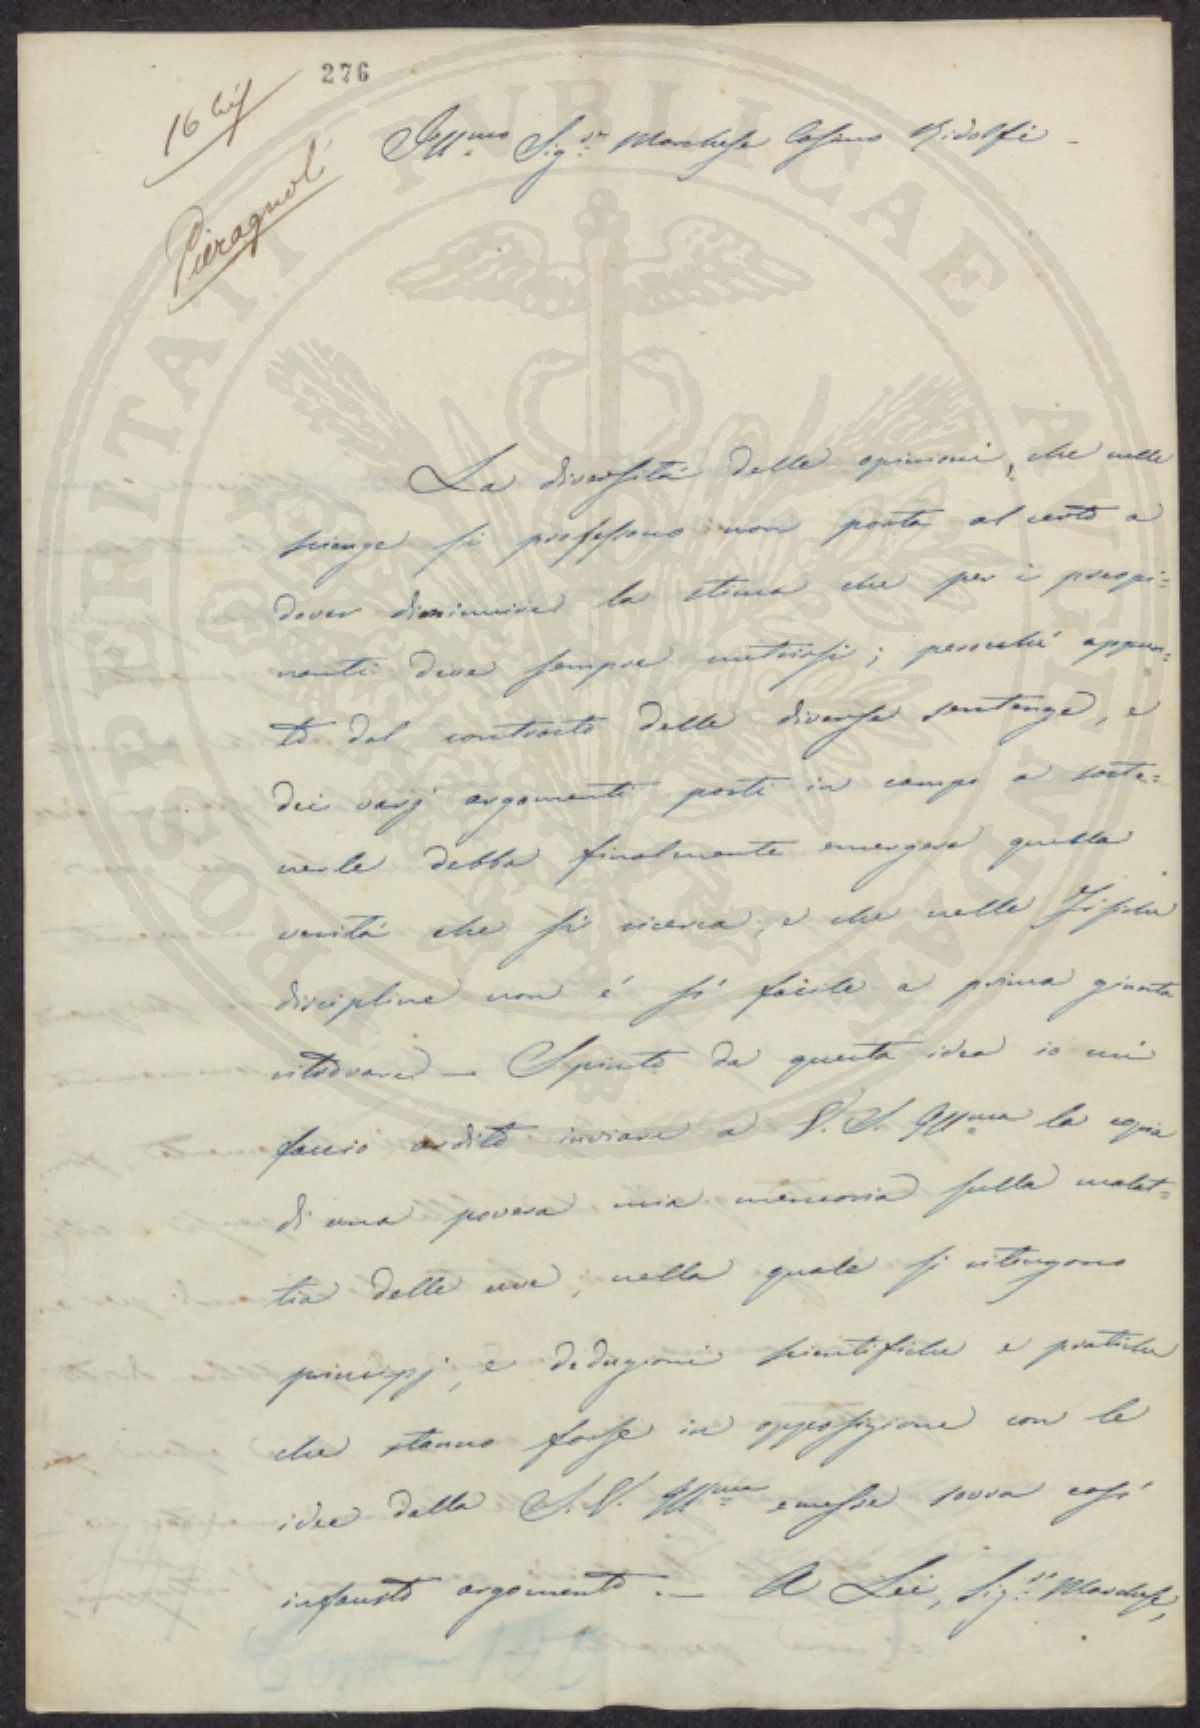 276
16 bis
Pieragnoli
Ill.mo Sig.r Marchese Cosimo Ridolfi
La diversità delle opinioni, che nelle
scienze si professano non porta al certo a
dover diminuire la stima che per i preopi=
nanti deve sempre nutrirsi; perocché appun=
to dal contrasto delle diverse sentenze, e
dei varj argomenti posti in campo a soste=
nerle debba finalmente emergere quella
verità che si ricerca, e che nelle Fisiche
discipline non é sì facile a prima giunta
ritrovare – Spinto da questa idea io mi
faccio ardito inviare a V. S. Ill.ma la copia
di una povera mia memoria sulla malat=
tia delle uve, nella quale si ritengono
principj, e deduzioni scientifiche e pratiche
che stanno forse in opposizione con le
idee della S. V. Ill.ma emesse sovra così
infausto argomento. – A Lei, Sig.r Marchese,
PROSPERITATI PVBLICAE AVGENDAE